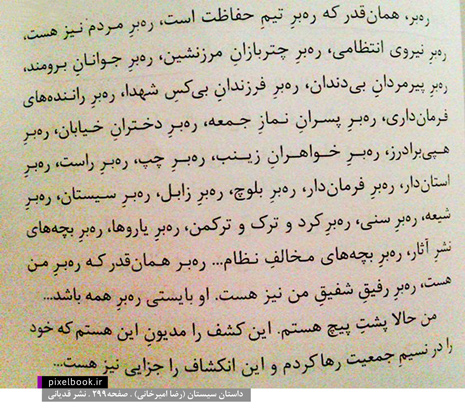 ره‌بر، همان‌قدر که ره‌برِ تیمِ حفاظت است، ره‌برِ مردم نیز هست،
ره‌برِ نیروی انتظامی، ره‌برِ چتربازانِ مرزنشین، ره‌برِ جوانانِ برومند،
ره‌برِ پیرمردانِ بی‌دندان، ره‌برِ فرزندانِ بی‌کسِ شهدا، ره‌برِ راننده‌های
فرمان‌داری، ره‌برِ پسرانِ نمازِ جمعه، ره‌برِ دخترانِ خیابان، ره‌برِ
هپی‌برادرز، ره‌برِ خواهرانِ زینب، ره‌برِ چپ، ره‌برِ راست، ره‌برِ
استان‌دار، ره‌برِ فرمان‌دار، ره‌برِ بلوچ، ره‌برِ زابل، ره‌برِ سیستان، ره‌برِ
شیعه، ره‌برِ سنی، ره‌برِ کرد و ترک و ترکمن، ره‌برِ یاروها، ره‌برِ بچه‌های
نشرِ آثار، ره‌برِ بچه‌های مخالفِ نظام... ره‌بر همان‌قدر که ره‌برِ من
هست، ره‌برِ رفیقِ شفیقِ من نیز هست. او بایستی ره‌برِ همه باشد...
من حالا پشتِ پیچ هستم. این کشف را مدیونِ این هستم که خود
را در نسیمِ جمعیت رها کردم و این انکشاف را جزایی نیز هست...
pixelbook.ir
داستان سیستان (رضا امیرخانی) . صفحه ۲۹۹ . نشر قدیانی